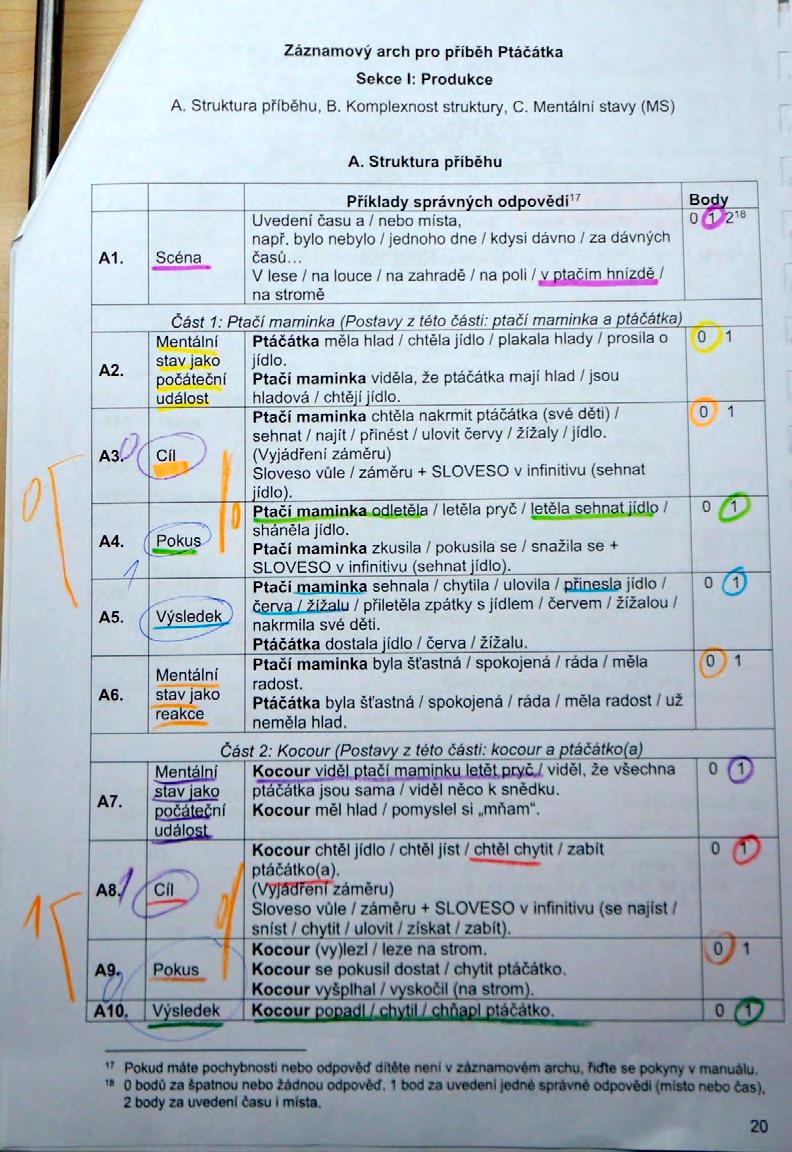 Záznamový arch pro příběh Ptáčátka
Sekce I: Produkce
A. Struktura příběhu, B. Komplexnost struktury, C. Mentální stavy (MS)
A. Struktura příběhu
Příklady správných odpovědí17 Body
A1. Scéna
Uvedení času a / nebo místa,
např. bylo nebylo / jednoho dne / kdysi dávno / za dávných
časů...
V lese / na louce / na zahradě / na poli / v ptačím hnízdě /
na stromě
0 1 218
Část 1: Ptačí maminka (Postavy z této části: ptačí maminka a ptáčátka)
A2. Mentální
stav jako
počáteční
událost
Ptáčátka měla hlad / chtěla jídlo / plakala hlady / prosila o
jídlo.
Ptačí maminka viděla, že ptáčátka mají hlad / jsou
hladová / chtějí jídlo.
0 1
A3. 0 Cíl
Ptačí maminka chtěla nakrmit ptáčátka (své děti) /
sehnat / najít / přinést / ulovit červy / žížaly / jídlo.
(Vyjádření záměru)
Sloveso vůle / záměru + SLOVESO v infinitivu (sehnat
jídlo).
0 1
0
A4. 1 Pokus
Ptačí maminka odletěla / letěla pryč / letěla sehnat jídlo /
sháněla jídlo.
Ptačí maminka zkusila / pokusila se / snažila se +
SLOVESO v infinitivu (sehnat jídlo).
0 1
A5. Výsledek
Ptačí maminka sehnala / chytila / ulovila / přinesla jídlo /
červa / žížalu / přiletěla zpátky s jídlem / červem / žížalou /
nakrmila své děti.
Ptáčátka dostala jídlo / červa / žížalu.
0 1
A6. Mentální
stav jako
reakce
Ptačí maminka byla šťastná / spokojená / ráda / měla
radost.
Ptáčátka byla šťastná / spokojená / ráda / měla radost / už
neměla hlad.
0 1
Část 2: Kocour (Postavy z této části: kocour a ptáčátko(a)
A7. Mentální
stav jako
počáteční
událost
Kocour viděl ptačí maminku letět pryč / viděl, že všechna
ptáčátka jsou sama / viděl něco k snědku.
Kocour měl hlad / pomyslel si „mňam“.
0 1
A8. 1 Cíl
Kocour chtěl jídlo / chtěl jíst / chtěl chytit / zabít
ptáčátko(a).
(Vyjádření záměru)
Sloveso vůle / záměru + SLOVESO v infinitivu (se najíst /
sníst / chytit / ulovit / získat / zabít).
0 1
1
A9. 0 Pokus
Kocour (vy)lezl / leze na strom.
Kocour se pokusil dostat / chytit ptáčátko.
Kocour vyšplhal / vyskočil (na strom).
0 1
A10. Výsledek Kocour popadl / chytil / chňapl ptáčátko. 0 1
17 Pokud máte pochybnosti nebo odpověď dítěte není v záznamovém archu, řiďte se pokyny v manuálu.
18 0 bodů za špatnou nebo žádnou odpověď. 1 bod za uvedení jedné správné odpovědi (místo nebo čas),
2 body za uvedení času i místa.
20